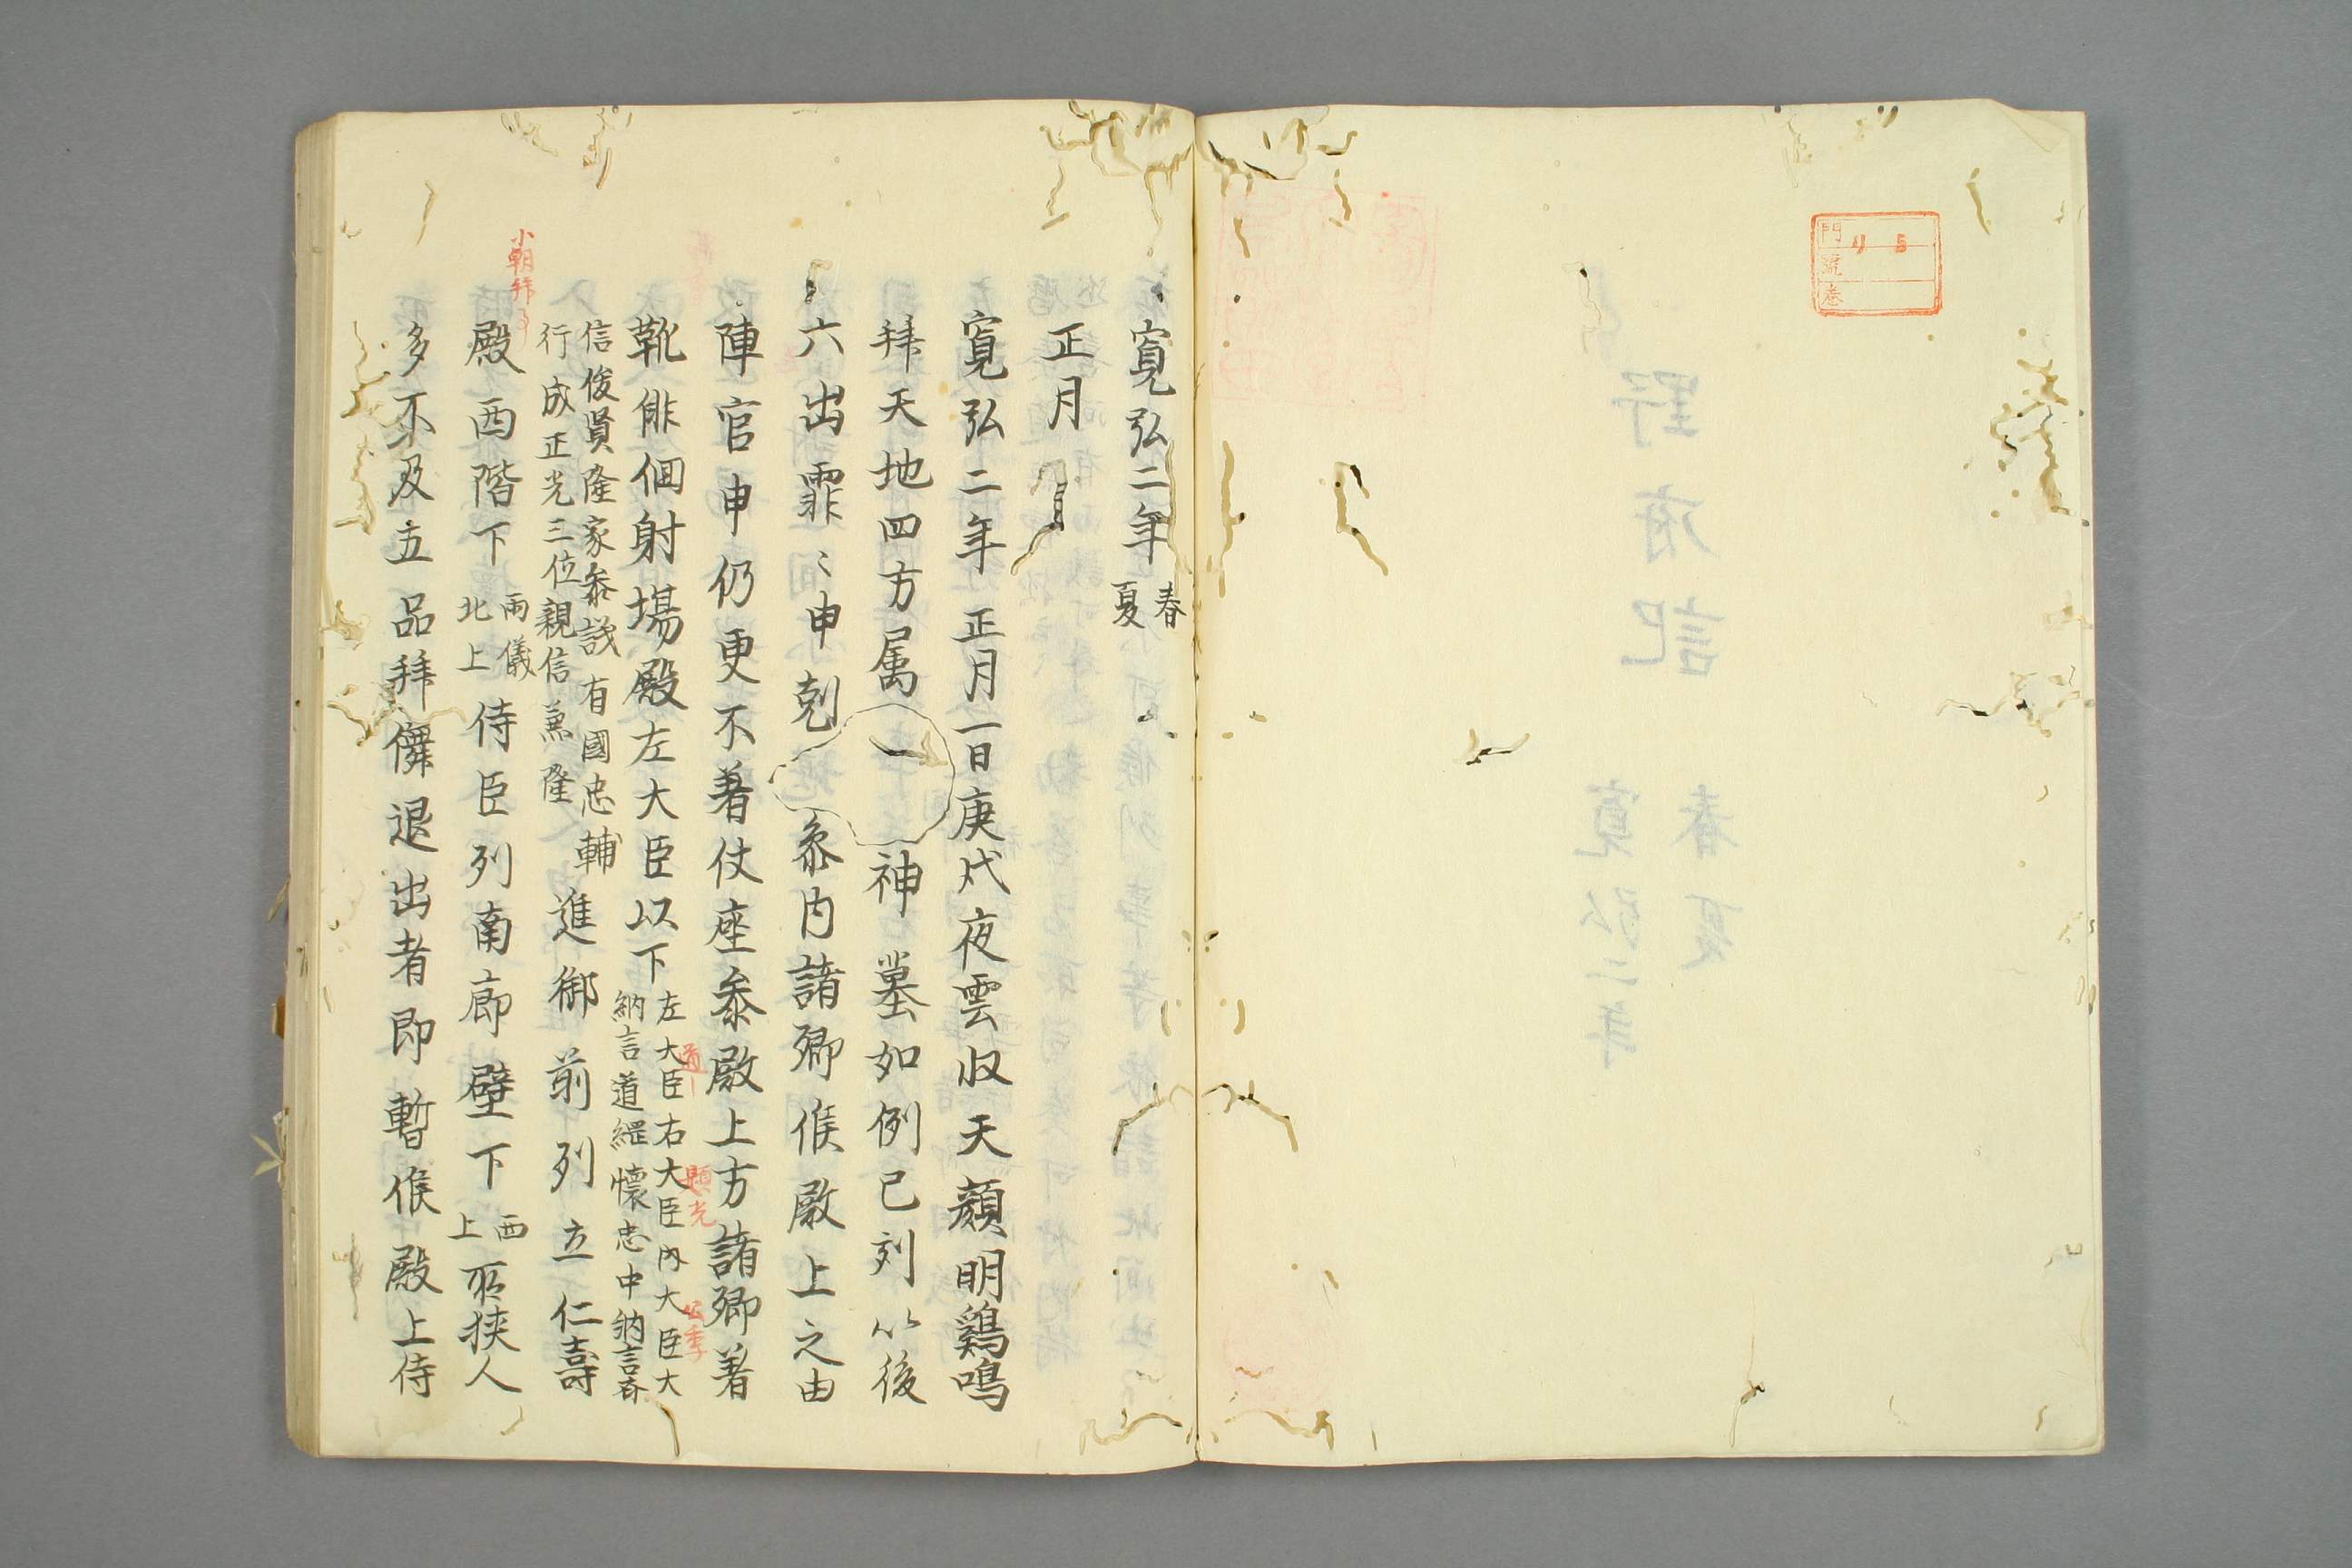 門
号
巻
寛弘二年 春
夏
正月
寛弘二年正月一日庚戌夜雲収天顔明鶏鳴
拜天地四方属 神墓如例已刻以後
六出霏〻申剋 参内諸卿候殿上之由
陣官申仍更不著仗座参殿上方諸卿著
靴俳佪射場殿左大臣以下左大臣右大臣内大臣大
納言道綱懐忠中納言斉
道
顕光
公季
信俊賢隆家参議有國忠輔
行成正光三位親信兼隆
進御前列立仁壽
小朝拜
殿西階下 両儀
北上 侍臣列南廊壁下 西
上 所狭人
多不及五品拜儛退出者即暫候殿上侍